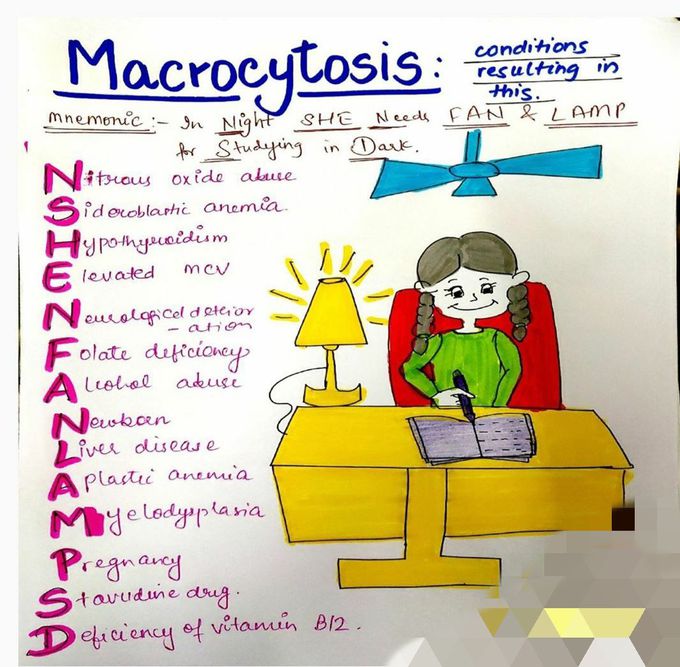 Macrocytosis: conditions
resulting in
this.
mnemonic :- In Night SHE Needs FAN & LAMP
for Studying in Dark.
Nitrous oxide abuse
Sideroblastic anemia.
Hypothyroidism
Elevated MCV
Neurological deterior
-ation
Folate deficiency
Alcohol abuse
Newborn
Liver disease
Aplastic anemia
Myelodysplasia
Pregnancy
Stavudine drug.
Deficiency of vitamin B12.